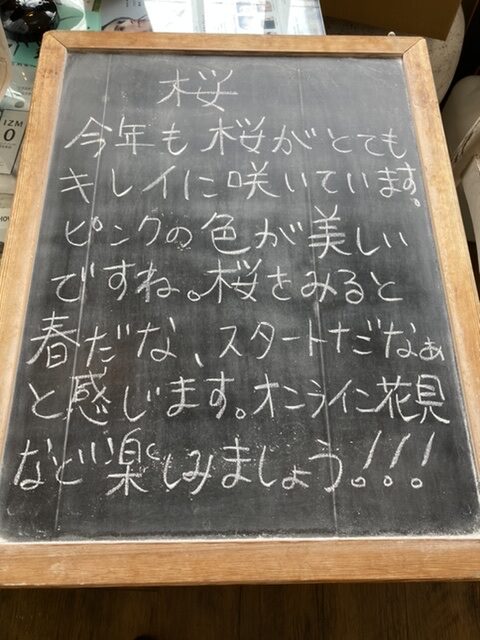 桜
今年も桜がとても
キレイに咲いています。
ピンクの色が美しい
ですね。桜をみると
春だな、スタートだなぁ
と感じます。オンライン花見
など楽しみましょう!!!
IZM
0